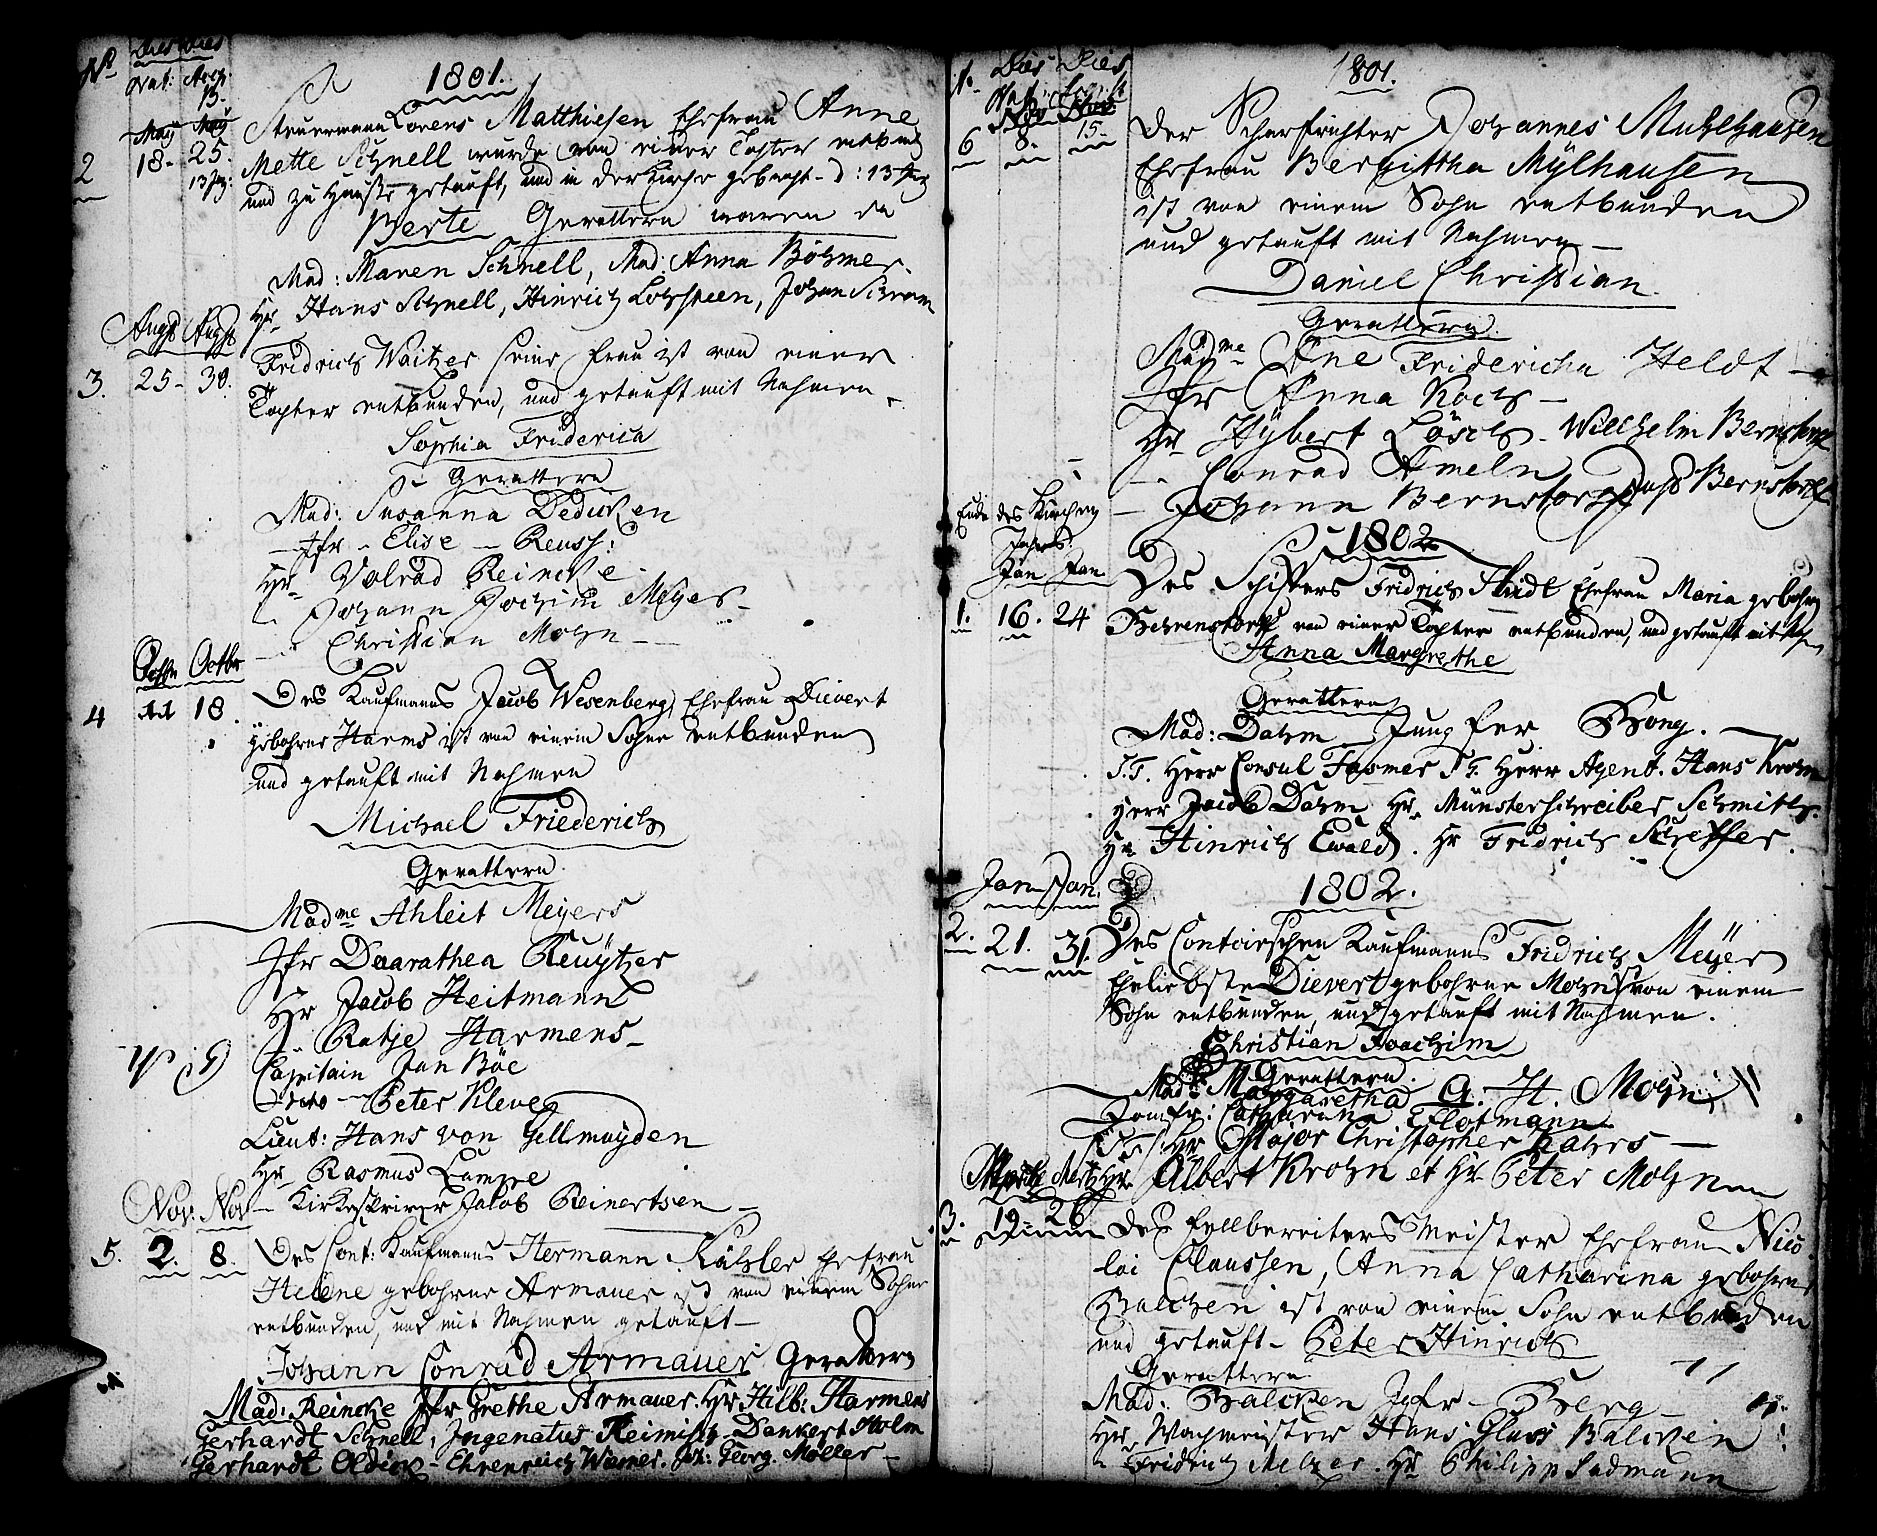 No Dies Dies
Nat: Acc:
13.
1801.
May May
2 18. 25. Steuermann Lorens Matthiesen Ehefrau Anne
13 Mette Schnell wurde von einer Tochter entbund
und zu Hause getauft, und in der Kirche gebracht d: 13
Berte Gevattern waren da
Mad: Maren Schnell, Mad: Anna Böhmer.
Hr Hans Schnell, Hinrich Lohspeen, Johan
Augst Augst
3. 25 - 30. Fridrich Waitzer seine Frau ist von einer
Tochter entbunden, und getauft mit Nahmen
Sophia Friderica
Gevattern
Mad: Susanna Dedicken
Jfr Elise Reusch:
Hr Volrad Reincke
Johann Jochim Meyer
Christian Mohn
Octbr Octbr
4 11 18. Des Kaufmanns Jacob Wesenberg, Ehefrau Dievert
gebohrne Harms ist von einem Sohne entbunden
und getauft mit Nahmen
Michael Friederich
Gevattern
Madme Ahleit Meyers
Jfr Daarathea Reuytzer
Hr Jacob Heitmann
Ratje Harmens
Capitain Jan Böe
Dito Peter Kleve
Lieut: Hans von Gellmuyden
Hr Rasmus Lampe
Nov. Nov Kirkeskriver Jacob Reinertsen
5. 2. 8. Des Cont: Kaufmanns Hermann Kahler Ehefrau
Helene gebohrne Armauer ist von einem Sohne
entbunden, und mit Nahmen getauft
Johann Conrad Armauer Gevattern
Mad: Reincke Jfr Grethe Armauer. Hr Hilb: Harmens
Gerhardt Schnell, Ingenatus Reimisch Dankert Holm
Gerhardt Oldick - Ehrenreich Wiener. Joh: Georg. Möller
Dies Dies
1801.
Nov Nov
6 8. 15. Der Scharfrichter Johannes Muhlhausen
Ehefrau Bergittha Mylhausen
ist von einem Sohn entbunden
und getauft mit Nahmen
Daniel Christian
Gevattern
Madme Ane Fridericha Heldt
Jfr Anna Koch
Hr Hybert Lösch. Willhelm Bernstorff
Conrad Ameln
Johann Bernstorff Bernstorff
Ende des Kirchen
Jahres
1802
Jan Jan
1. 16. 24 Des Schiffers Fridrich Studt Ehefrau Maria gebohrn
Behrenstorff von einer Tochter entbunden, und getauft mit
Anna Margrethe
Gevattern
Mad: Dahm Jungfer Bong.
S.T. Herr Consul Fasmer S.T. Herr Agent. Hans Krohn
Herr Jacob Dahm Hr Münsterschreiber Schmith.
Hr Hinrich Ewald. Hr Fridrich Scheffer.
Jan Jan. 1802.
2. 21. 31. Des Contoirschen Kaufmanns Fridrich Meyer
Eheliebste Dievert gebohrne Mohn ist von einem
Sohn entbunden, und getauft mit Nahmen.
Christian Joachim
Gevattern.
Mad: Margaretha G. H. Mohn
Jomfr: Catharina Elotmann
S.T. Hr Major Christopher Kahrs
Hr Albert Krohn et Hr Peter Mohn
Mertz Mertz
3. 19 - 26 Des Fellbereiters Meister Ehefrau Nico
lai Claussen, Anna Catharina gebohrne
Balchen ist von einem Sohn entbunden
und getauft - Peter Hinrich
Gevattern
Mad: Balcken Jgfr Berg
Hr Wachmeister Hans Claus Balcken
Fridrich Melzer. Hr Philipp Sadmann